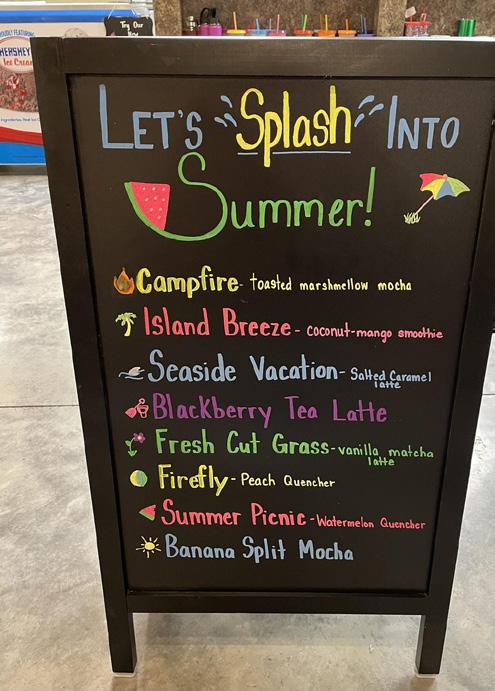 PROUDLY FEATURING
HERSHEY'S
Ice Cream
Try Our
New
LET'S Splash INTO
Summer!
Campfire- toasted marshmellow mocha
Island Breeze - coconut-mango smoothie
Seaside Vacation- Salted Caramel
latte
Blackberry Tea Latte
Fresh Cut Grass-vanilla matcha
latte
Firefly - Peach Quencher
Summer Picnic -Watermelon Quencher
Banana Split Mocha